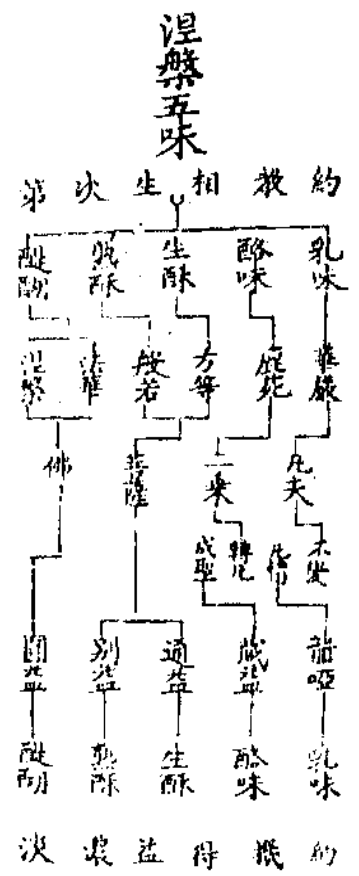 涅槃五味
約教相生次第
乳味 酪味 生酥 熟酥 醍醐
華嚴 鹿苑 方等 般若 法華 涅槃
凡夫 二乘 菩薩 佛
不變 轉凡 成聖
聾啞 藏益 通益 別益 圓益
乳味 酪味 生酥 熟酥 醍醐
約機得益濃淡